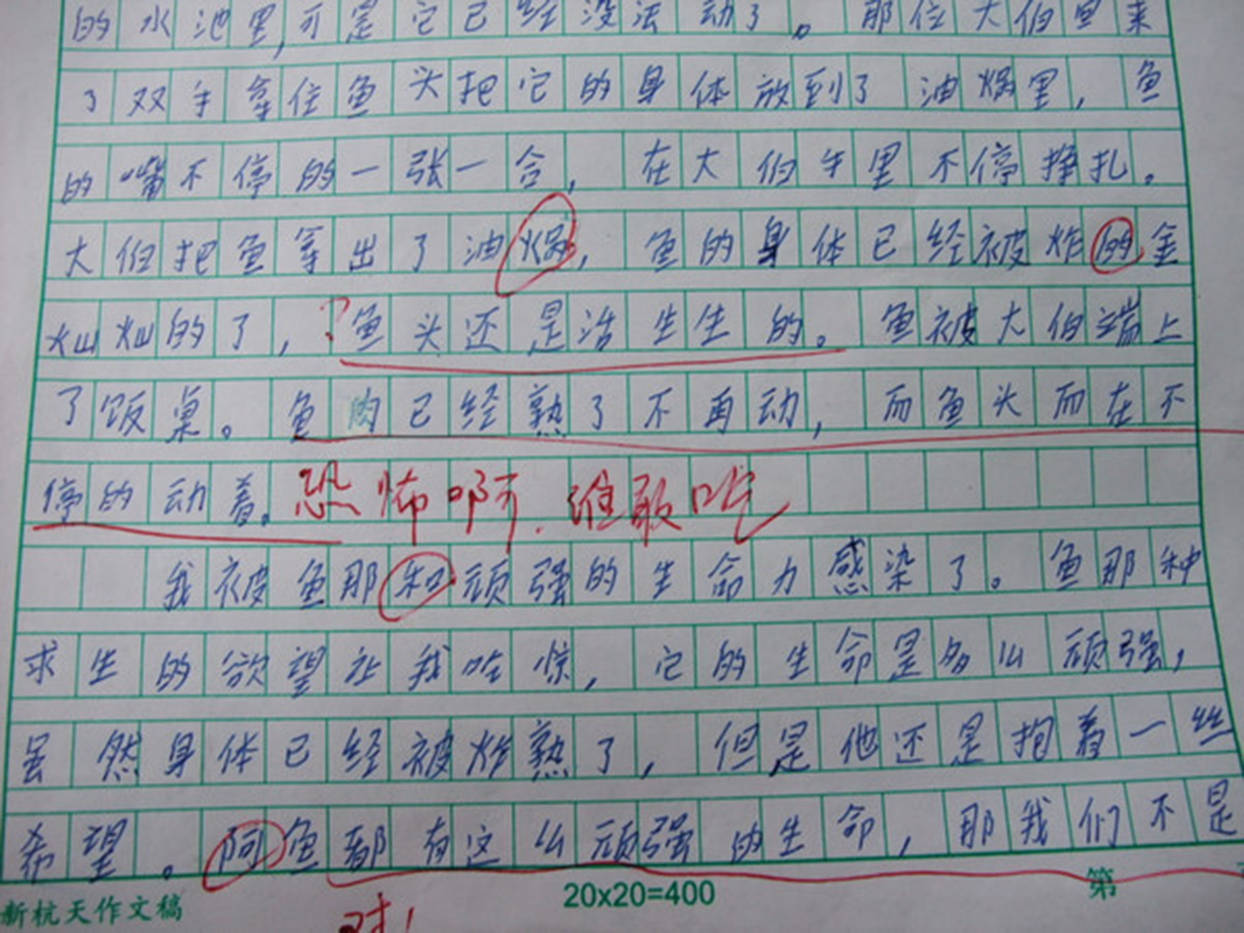 的水池里,可是它已经没法动了。那位大伯里来
了双手拿住鱼头把它的身体放到了油焬里,鱼
的嘴不停的一张一合,在大伯手里不停挣扎。
大伯把鱼拿出了油焬,鱼的身体已经被炸的金
灿灿的了,?鱼头还是活生生的。鱼被大伯端上
了饭桌。鱼肉已经熟了不再动,而鱼头而在不
停的动着。恐怖啊.谁敢吃
我被鱼那和顽强的生命力感染了。鱼那种
求生的欲望让我吃惊,它的生命是多么顽强,
虽然身体已经被炸熟了,但是他还是抱着一丝
希望。阿鱼都有这么顽强的生命,那我们不是
新杭天作文稿
20x20=400
第
对!